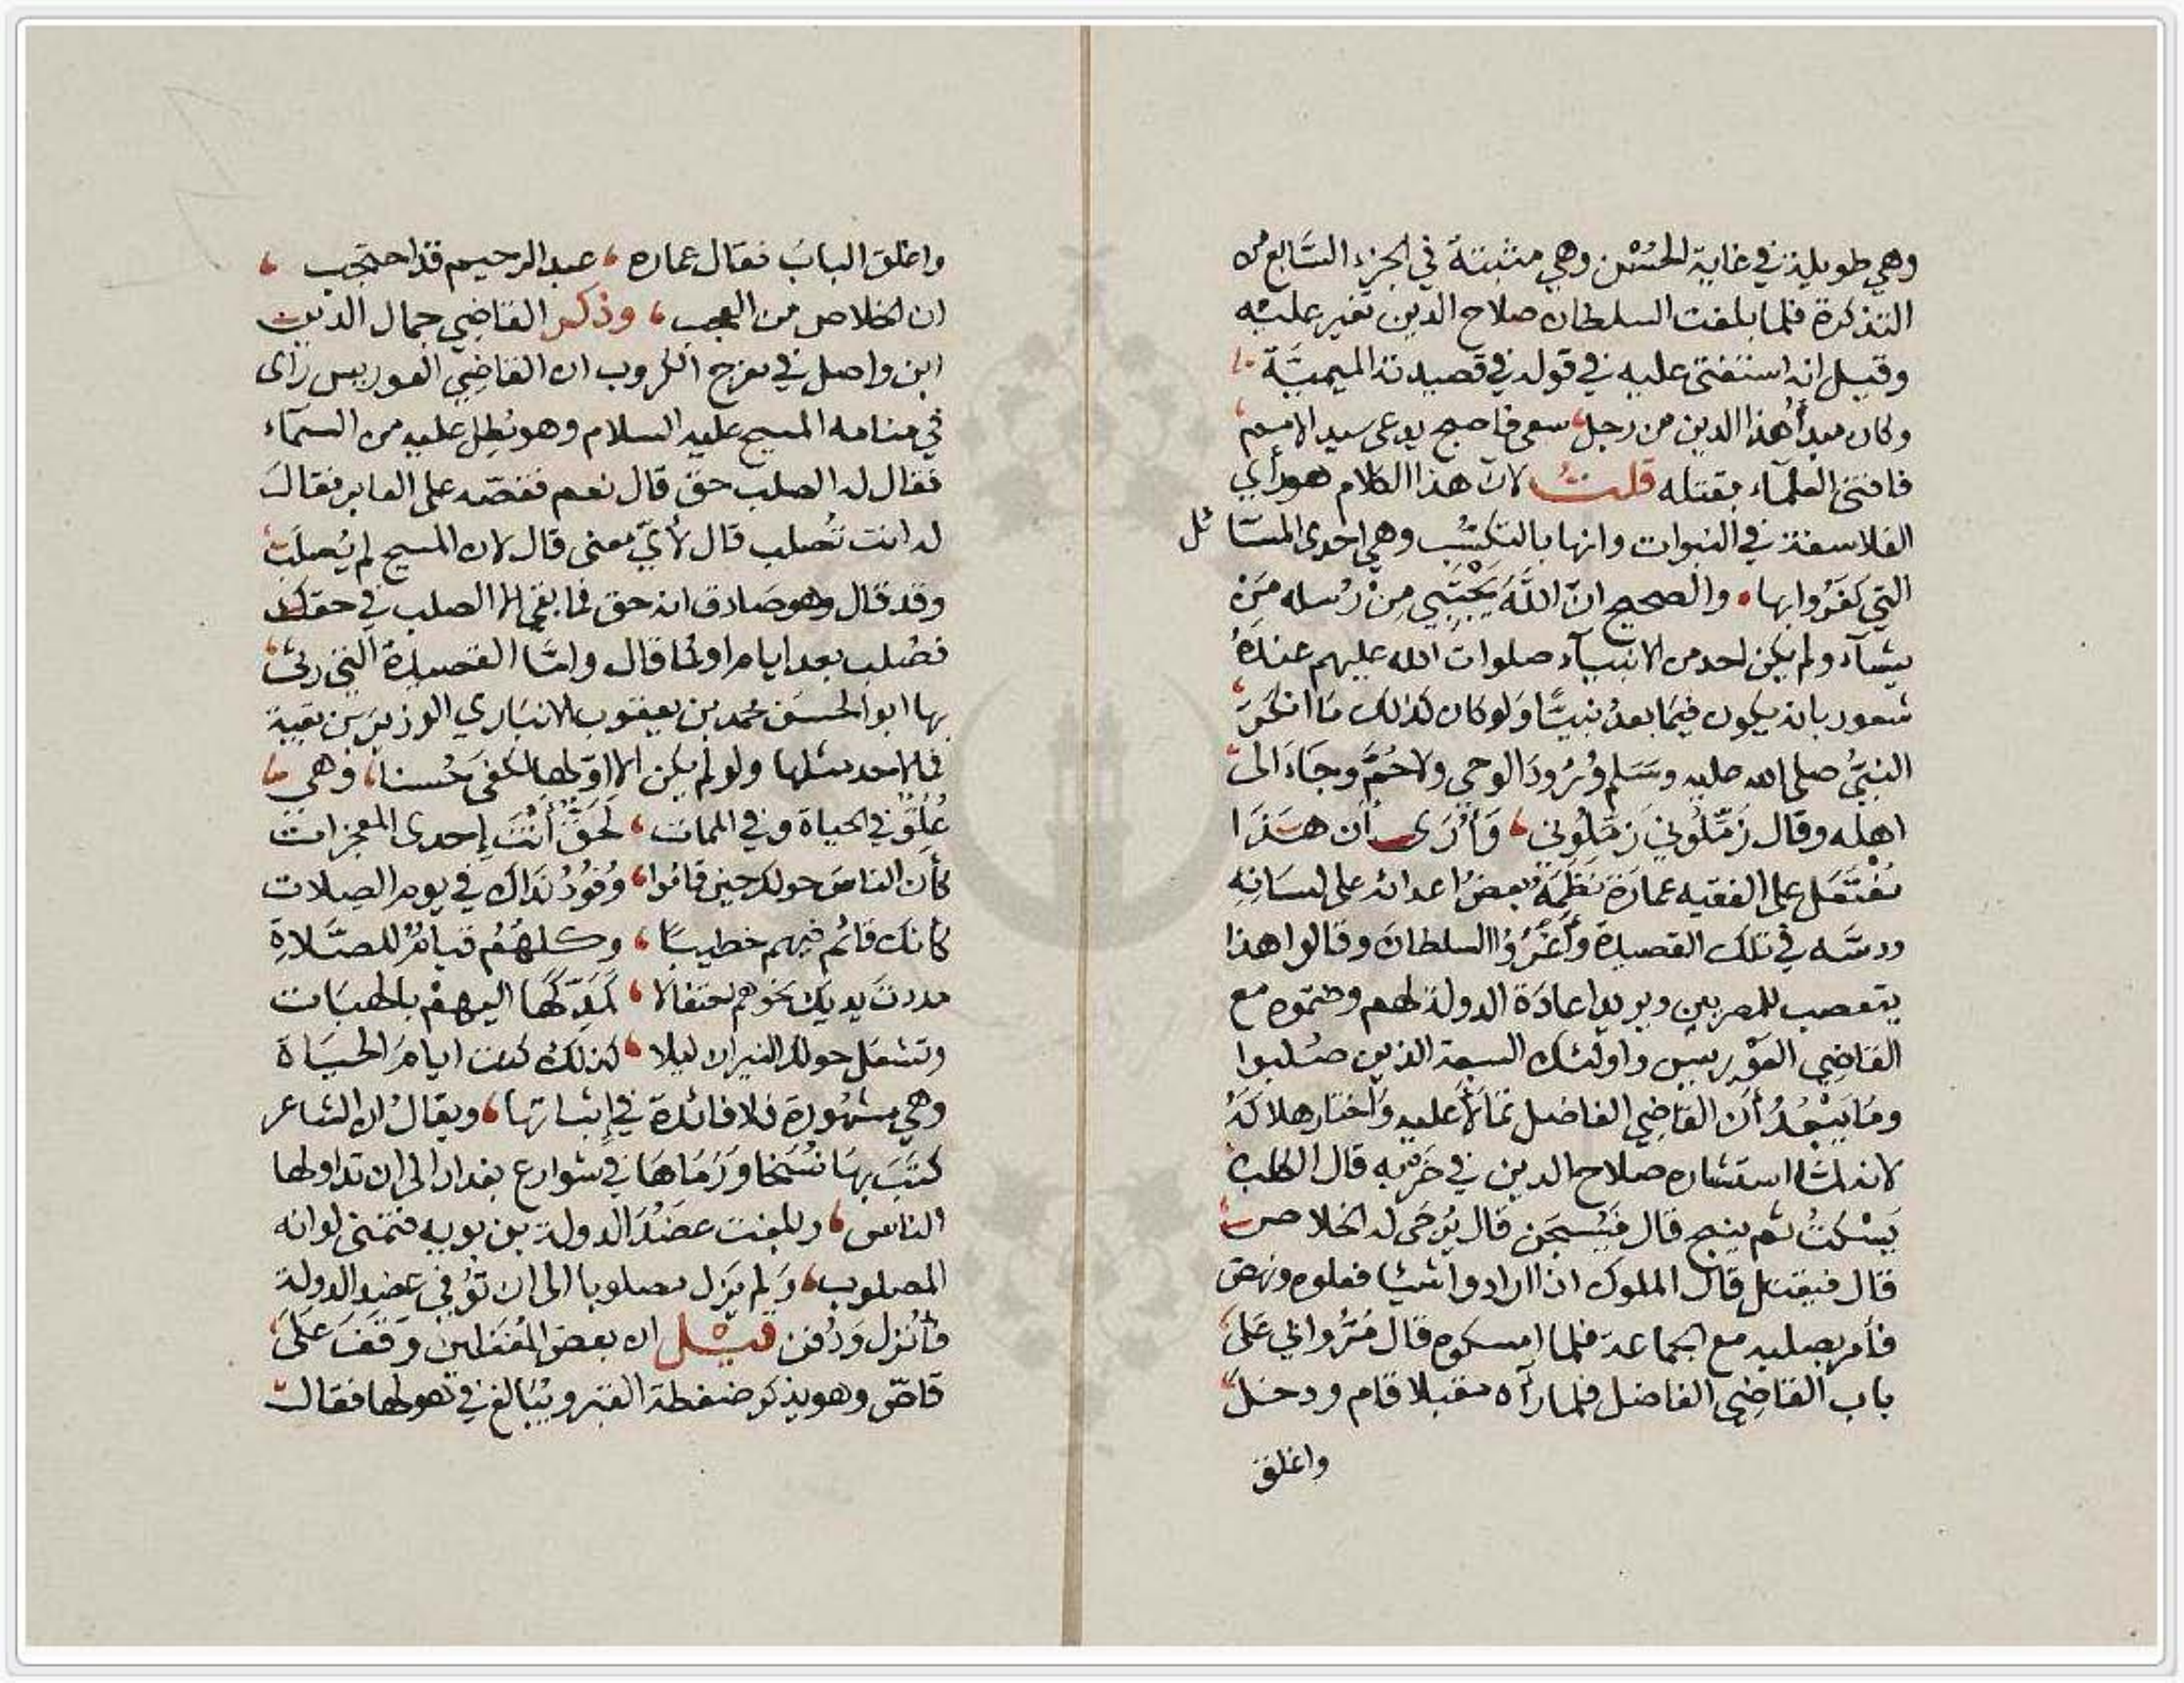 وهي طويلة في غاية الحُسْن وهي مثبتة في الجزء السَّابع من
التذكرة فلما بلغت السلطان صلاح الدين تغير عليْه
وقيل انه استفتى عليه في قوله في قصيدته الميميَّة
وكان مبدأ هذا الدين من رجل، سعى فاصبح يدعى سيد الامم،
فافتى العلمآء بقتله قلتُ لان هذا الكلام هو رأي
الفلاسفة في النبوات وانها بالتكسُّب وهي احدى المسَائل
التي كفَرُوا بها، والصحيح انّ اللَّهَ يَجْتَبِي مِنْ رُسله مَنْ
يشآء ولم يكن لاحد من الانبيآء صلوات الله عليهم عندَهُ
شعور بانه يكون فيمَا بعدُ نبيًّا وَلو كان كذلك مَا انكرَ،
النبيُّ صلى الله عليه وسَلم وُرُودَ الوحي ولا حُمَّ وجَاءَ الى
اهله وقال زَمّلُوني زَمّلُوني، وَأَرَى أن هَذا
مُفْتَعَل على الفقيه عمارَة نَظَمَهُ بعضُ اعدائه على لسَانِهِ
ودسَّه في تلك القصيدة وأَغْرَوُا السلطان وقالوا هذا
يتعصب للمصريين ويريد اعادَة الدولة لهم وضمّوه مع
القاضِي العَوْريس واولئك السبعة الذين صُلبوا
ومَا يَبْعُدُ أَن القاضِي الفاضل تمَالأَ عليه وَاختار هلاكَهُ
لانه لمّا استشاره صلاح الدين في ضَرْبه قال الكلب
يَسْكتُ ثم ينبح قال فَيُسجَن قال يُرْجَى له الخلاص
قال فيقتل قال الملوك اذا ارادوا شيئا فعلوه ونهض
فأمر بصلبه مع الجماعة فلما امسكوه قال مُرُّوا بي عَلَى
باب القاضِي الفاضل فلما رآه مقبلا قام ودخلَ
واغلق
واغلق البابَ فقال عماره، عبد الرحيم قد احتجب،
ان الخلاص من العجب، وذكر القاضِي جمال الدين
ابن واصل في مفرج الكروب ان القاضِي العوريس رَاى
في منامه المسيح عليه السلام وهو يُطِل عليه من السمآء
فقال له الصلب حق قال نعم فقصّه على العابر فقال
له انت تُصلب قال لأيّ معنى قال لان المسيح لم يُصلَب
وقد قال وهو صَادق انه حق فما بقي الا الصلب في حقك
فصُلب بعد ايام اوكما قال وامَّا القصيدة التي رثى
بها ابو الحسَن محمد بن يعقوب الانبَاري الوزيرَ بن بقية
فما لاحد مثلها ولو لم يكن الا اوّلها لكفى حُسنا، وهي
عُلُوٌّ في الحياة وفي الممات، لَحَقٌّ أَنْتَ إحدى المعجزات
كأن الناسَ حولك حين قامُوا، وُفودُ نَدَاكَ في يوم الصِلات
كأنك قائم فيهم خطيبًا، وكلهُمُ قيامٌ للصَّلاةِ
مددتَ يديك نحوهم احتفالا، كَمَدِّكَهَا اليهمْ بالهبَات
وتشعَل حولك النيران ليلا، كذلك كنت ايامَ الحيَاة
وهي مشهُورة فلا فائدة في إثباتها، ويقالُ ان الشاعر
كتَبَ بهَا نُسَخا وَرَمَاهَا في شوارع بغداد الى ان تداولها
الناس، وبلغت عضُدَ الدولة بن بويه فتمنى لو انه
المصلوب، وَلم يَزل مصلوبا الى ان تُوُفي عضد الدولة
فأُنزل وَدُفن قيْل ان بعض المُغَفلين وَقَفَ عَلَى
قاصّ وهو يذكر ضغطة القبر ويُبَالغ في هولها فقال